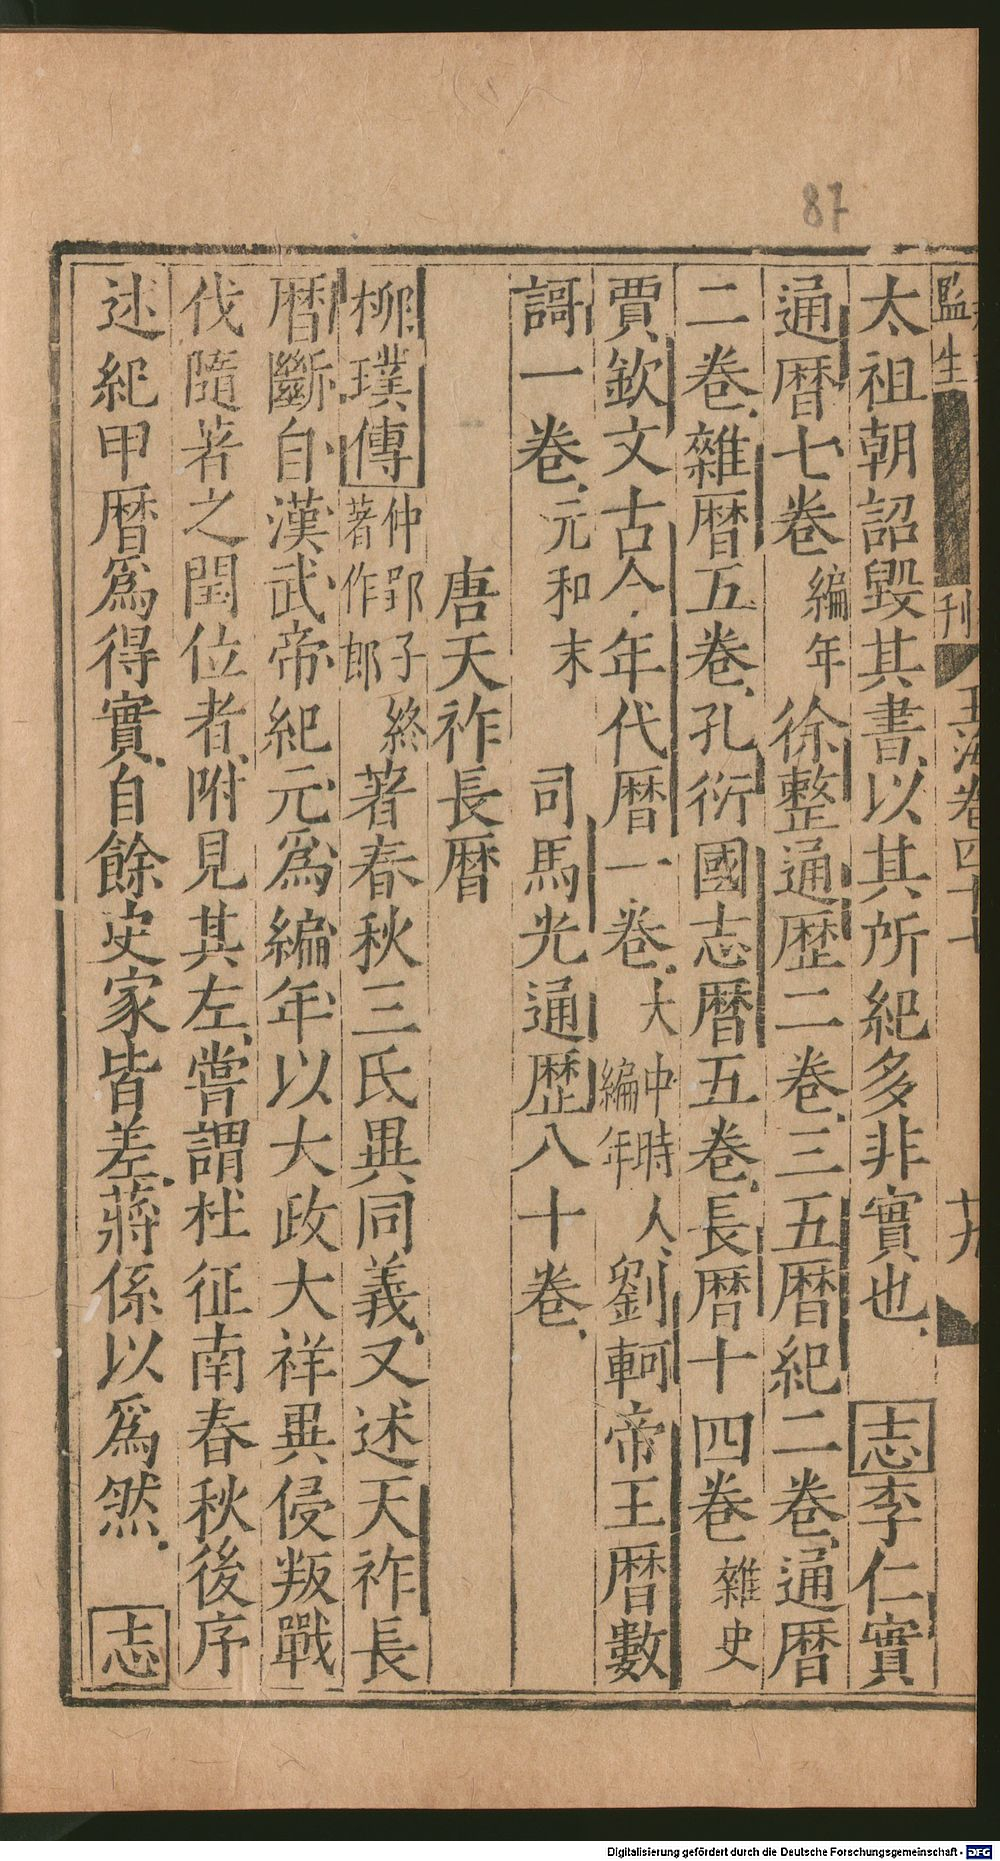 87
監生
刊
玉海卷四十七
十九
太祖朝詔毀其書以其所紀多非實也 志李仁實
通曆七卷編年徐整通歷二卷三五曆紀二卷通曆
二卷雜曆五卷孔衍國志曆五卷長曆十四卷雜史
賈欽文古今年代曆一卷大中時人編年劉軻帝王曆數
謌一卷元和末 司馬光通歷八十卷
唐天祚長曆
柳璞傳仲郢子終著作郎著春秋三氏異同義又述天祚長
曆斷自漢武帝紀元為編年以大政大祥異侵叛戰
伐隨著之閏位者附見其左嘗謂杜征南春秋後序
述紀甲曆為得實自餘史家皆差蔣係以為然 志
Digitalisierung gefördert durch die Deutsche Forschungsgemeinschaft - DFG